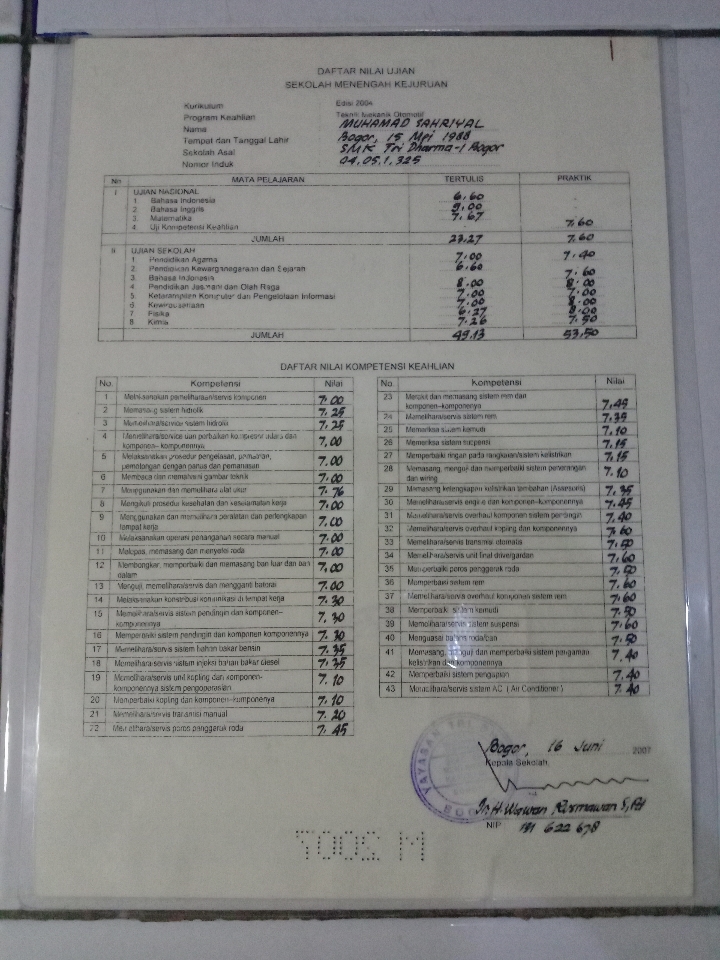 DAFTAR NILAI UJIAN
SEKOLAH MENENGAH KEJURUAN
Kurikulum Edisi 2004
Program Keahlian Teknik Mekanik Otomotif
Nama MUHAMAD SAHRIYAL
Tempat dan Tanggal Lahir Bogor, 15 Mei 1988
Sekolah Asal SMK Tri Dharma-1 Bogor
Nomor Induk 04.05.1.325
No MATA PELAJARAN TERTULIS PRAKTIK
I UJIAN NASIONAL
1 Bahasa Indonesia 6.60 -
2 Bahasa Inggris 9.00 -
3 Matematika 7.67 -
4. Uji Kompetensi Keahlian - 7.60
JUMLAH 23.27 7.60
II UJIAN SEKOLAH
1. Pendidikan Agama 7.00 7.40
2. Pendidikan Kewarganegaraan dan Sejarah 6.60
3. Bahasa Indonesia 7.60
4 Pendidikan Jasmani dan Olah Raga 8.00 8.00
5. Keterampilan Komputer dan Pengelolaan Informasi 7.00 7.00
6 Kewirausahaan 7.00 8.00
7 Fisika 6.27 8.00
8 Kimia 7.26 7.50
JUMLAH 49.13 53.50
DAFTAR NILAI KOMPETENSI KEAHLIAN
No. Kompetensi Nilai
1 Melaksanakan pemeliharaan/servis komponen 7.00
2 Memasang sistem hidrolik 7.25
3 Memelihara/service sistem hidrolik 7.25
4 Memelihara/service dan perbaikan kompresor udara dan
komponen-komponennya 7.00
5 Melaksanakan prosedur pengelasan, pematrian,
pemotongan dengan panas dan pemanasan 7.00
6 Membaca dan memahami gambar teknik 7.00
7 Menggunakan dan memelihara alat ukur 7.76
8 Mengikuti prosedur kesehatan dan keselamatan kerja 7.00
9 Menggunakan dan memelihara peralatan dan perlengkapan
tempat kerja 7.00
10 Melaksanakan operasi penanganan secara manual 7.00
11 Melepas, memasang dan menyetel roda 7.00
12 Membongkar, memperbaiki dan memasang ban luar dan ban
dalam 7.00
13 Menguji, memelihara/servis dan mengganti baterai 7.00
14 Melaksanakan kontribusi komunikasi di tempat kerja 7.30
15 Memelihara/servis sistem pendingin dan komponen-
komponennya 7.30
16 Memperbaiki sistem pendingin dan komponen komponennya 7.30
17 Memelihara/servis sistem bahan bakar bensin 7.35
18 Memelihara/servis sistem injeksi bahan bakar diesel 7.35
19 Memelihara/servis unit kopling dan komponen-
komponennya sistem pengoperasian 7.10
20 Memperbaiki kopling dan komponen-komponenya 7.10
21 Memelihara/servis transmisi manual 7.20
22 Memelihara/servis poros penggerak roda 7.45
No. Kompetensi Nilai
23 Merakit dan memasang sistem rem dan
komponen-komponenya 7.45
24 Memelihara/servis sistem rem 7.35
25 Memeriksa sistem kemudi 7.10
26 Memeriksa sistem suspensi 7.15
27 Memperbaiki ringan pada rangkaian/sistem kelistrikan 7.15
28 Memasang, menguji dan memperbaiki sistem penerangan
dan wiring 7.10
29 Memasang kelengkapan kelistrikan tambahan (Assesoris) 7.35
30 Memelihara/servis engine dan komponen-komponennya 7.45
31 Memelihara/servis overhaul komponen sistem pendingin 7.40
32 Memelihara/servis overhaul kopling dan komponennya 7.60
33 Memelihara/servis transmisi otomatis 7.50
34 Memelihara/servis unit final drive/gardan 7.60
35 Memperbaiki poros penggerak roda 7.50
36 Memperbaiki sistem rem 7.60
37 Memelihara/servis overhaul komponen sistem rem 7.60
38 Memperbaiki sistem kemudi 7.50
39 Memelihara/servis sistem suspensi 7.60
40 Menguasai balans roda/ban 7.50
41 Memasang, menguji dan memperbaiki sistem pengaman
kelistrikan dan komponennya 7.40
42 Memperbaiki sistem pengapian 7.40
43 Memelihara/servis sistem AC ( Air Conditioner ) 7.40
Bogor, 16 Juni 2007
Kepala Sekolah,
YAYASAN TRI
Ir.H.Wawan Rusmawan S,Pd
NIP 131 622 678
M 2007